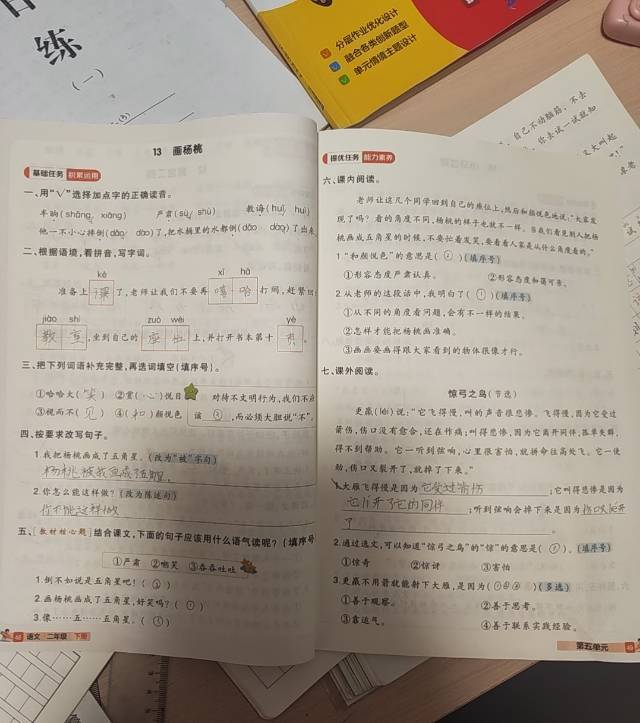 练
(一)
分层作业优化设计
融合各类创新题型
单元情境主题设计
自己不动脑筋,不去
你去试一试就知
又大叫起
13 画杨桃
基础任务 积累运用
一、用“√”选择加点字的正确读音。
半晌(shǎng xiǎng) 严肃(sù shù) 教诲(huǐ huì)
他一不小心摔倒(dǎo dào)了,把水桶里的水都倒(dǎo dào)了出来
二、根据语境,看拼音,写字词。
kè
xī hā
准备上 课 了,老师让我们不要再 嘻 哈 打闹,赶紧回
jiào shì
zuò wèi
yè
教 室 ,坐到自己的 座 位 上,并打开书本第十 页 。
三、把下列词语补充完整,再选词填空(填序号)。
①哈哈大( 笑 ) ②赏( 心 )悦目 对待不文明行为,我们不应
③视而不( 见 ) ④( 和 )颜悦色 该 ③ ,而必须大胆说“不”。
四、按要求改写句子。
1.我把杨桃画成了五角星。(改为“被”字句)
杨桃被我画成了五角星。
2.你怎么能这样做?(改为陈述句)
你不能这样做
五、[教材核心题]结合课文,下面的句子应该用什么语气读呢?(填序号
①严肃 ②嘲笑 ③吞吞吐吐
1.倒不如说是五角星吧!( ② )
2.画杨桃画成了五角星,好笑吗?( ① )
3.像……五……五角星。( ③ )
48 语文 二年级 下册
提优任务 能力素养
六、课内阅读。
老师让这几个同学回到自己的座位上,然后和颜悦色地说:“大家发
现了吗?看的角度不同,杨桃的样子也就不一样。当我们看见别人把杨
桃画成五角星的时候,不要忙着发笑,要看看人家是从什么角度看的。”
1.“和颜悦色”的意思是( ② )(填序号)
①形容态度严肃认真。 ②形容态度和蔼可亲。
2.从老师的这段话中,我明白了( ① )(填序号)
①从不同的角度看问题,会有不一样的结果。
②怎样才能把杨桃画准确。
③画画要画得跟大家看到的物体很像才行。
七、课外阅读。
惊弓之鸟(节选)
更羸(léi)说:“它飞得慢,叫的声音很悲惨。飞得慢,因为它受过
箭伤,伤口没有愈合,还在作痛;叫得悲惨,因为它离开同伴,孤单失群,
得不到帮助。它一听到弦响,心里很害怕,就拼命往高处飞。它一使
劲,伤口又裂开了,就掉了下来。”
1.大雁飞得慢是因为 它受过箭伤 ;它叫得悲惨是因为
它离开了它的同伴 ;听到弦响会掉下来是因为 伤口裂开
了 。
2.通过选文,可以知道“惊弓之鸟”的“惊”的意思是( ③ )。(填序号)
①惊奇 ②惊讶 ③害怕
3.更羸不用箭就能射下大雁,是因为( ①②④ )(多选)
①善于观察。 ②善于思考。
③靠运气。 ④善于联系实践经验。
第五单元 49